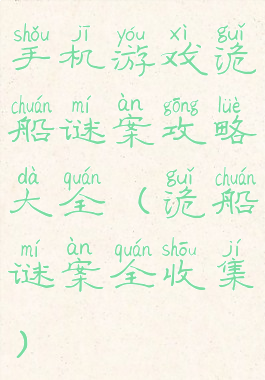 shǒu jī yóu xì guǐ
手机游戏诡
chuán mí àn gōng lüè
船谜案攻略
dà quán guǐ chuán
大全（诡船
mí àn quán shōu jí
谜案全收集
）